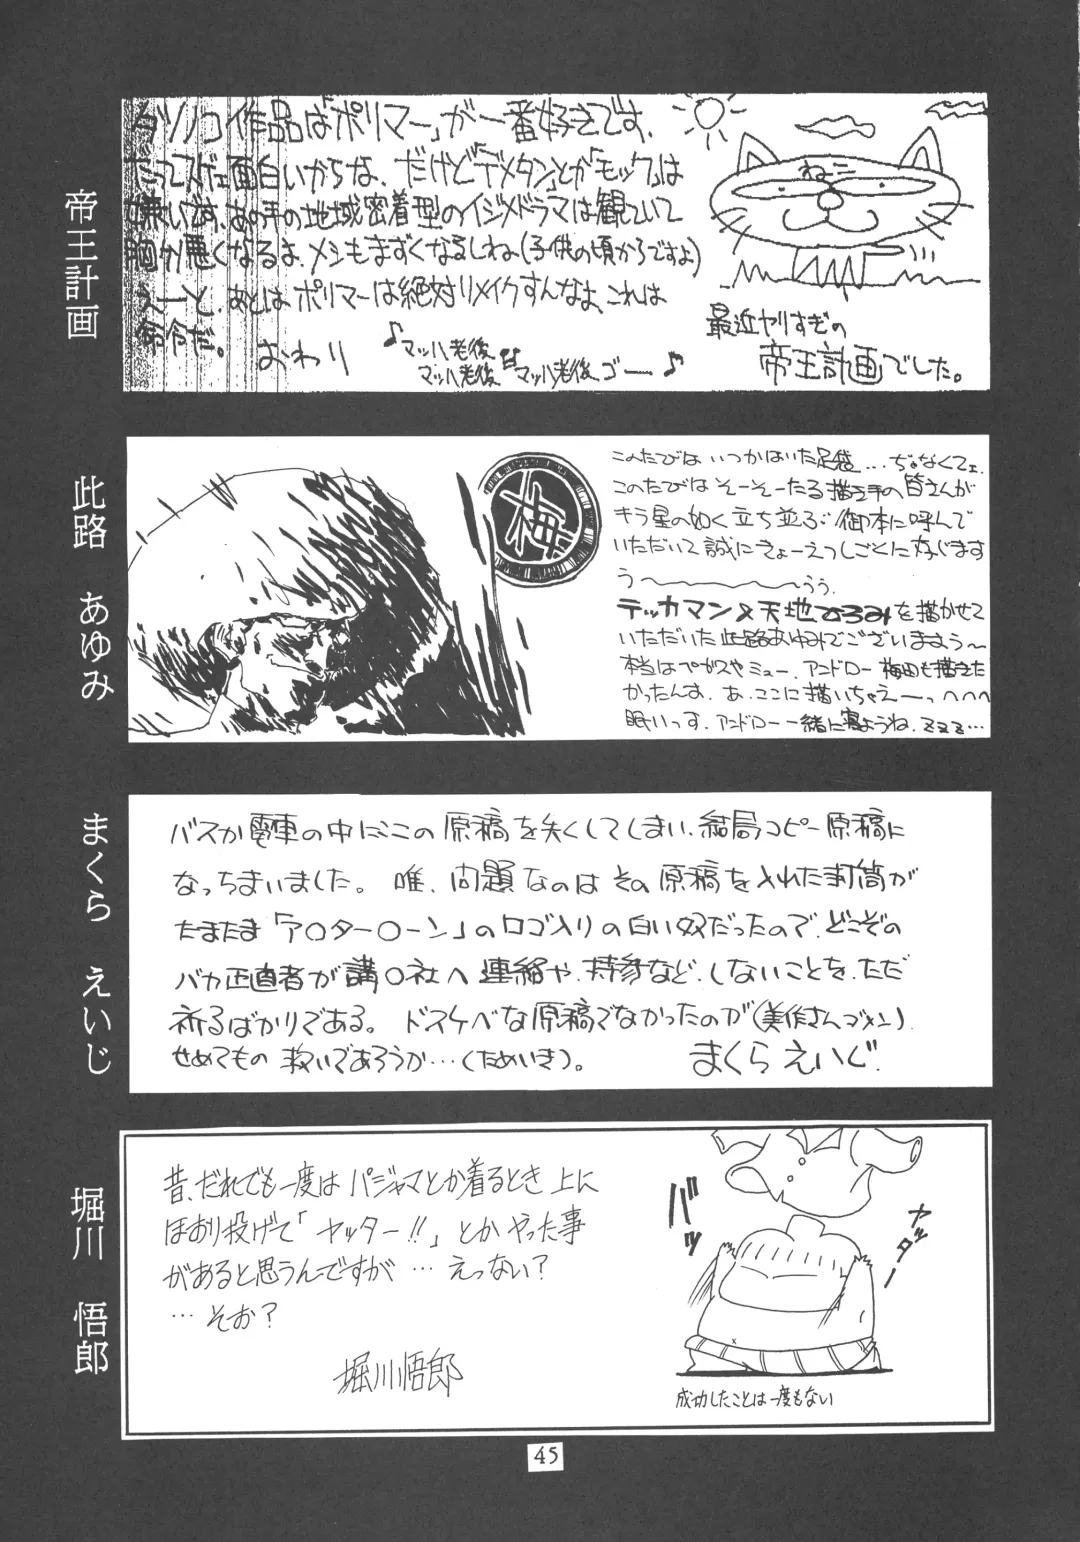 帝王計画
タツノコ作品は「ポリマー」が一番好きです。
だってスゲェ面白いからな、だけど「デメタン」とか「モック」は
嫌いです。あの手の地域密着型のイジメドラマは観ていて
胸が悪くなるよ、メシもまずくなるしね(子供の頃からですよ)
えーと、あとはポリマーは絶対リメイクすんなよ、これは
命令だ。
おわり
♪マッハ老後
マッハ老後
マッハ老後ゴー♪
ねこ
最近ヤリすぎの
帝王計画でした。
此路 あゆみ
梅
このたびは いつかはいた足袋…ぢょなくてェ、
このたびは そーそーたる描き手の皆さんが
キラ星の如く立ち並ぶ御本に呼んで
いただいて誠にきょーえつしごくに存じます
う〜〜〜うぅ
テッカマン 天地ひろみを描かせて
いただいた此路あゆみでございますよう〜
本当はペガスやミュー、アンドロー梅田も描きた
かったんす。あ、ここに描いちゃえーっへへへ
眠いっす。アンドロー一緒に寝ようね。ZZZ…
まくら えいじ
バスか電車の中にこの原稿を失くしてしまい、結局コピー原稿に
なっちまいました。唯、問題なのはその原稿を入れた封筒が
たまたま「ア○ター○ーン」のロゴ入りの白い奴だったので、どこぞの
バカ正直者が講○社へ連絡や、持参など、しないことを、ただ
祈るばかりである。ドスケベな原稿でなかったのが(美作さんゴメン)、
せめてもの救いであろうか…(ためいき)。
まくらえいじ
堀川 悟郎
昔、だれでも一度はパジャマとか着るとき上に
ほおり投げて「ヤッター!!」とかやった事
があると思うんですが…えっない?
…そお?
堀川悟郎
バッ
ヤッター
成功したことは一度もない
45